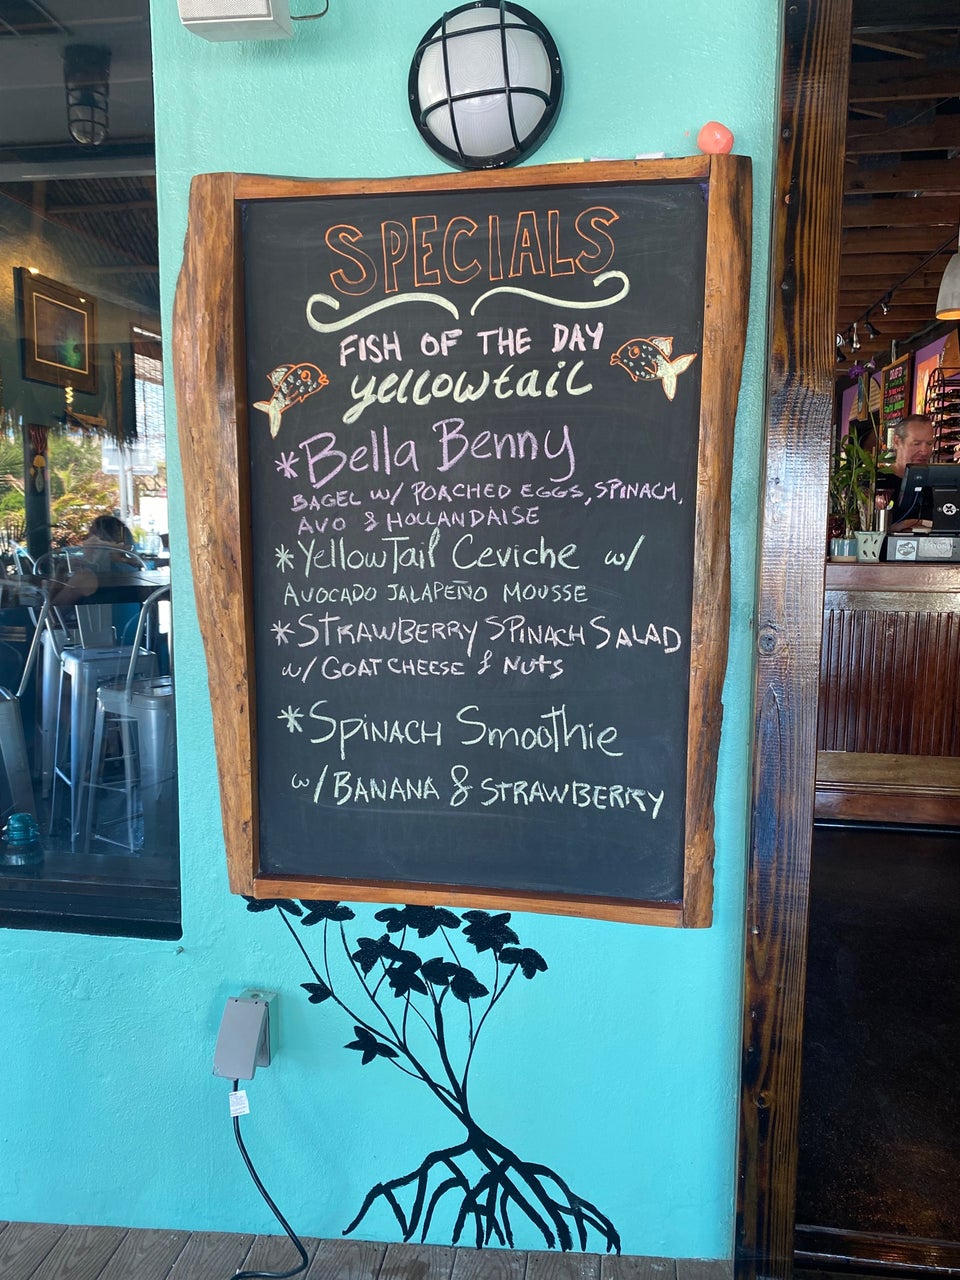 SPECIALS
FISH OF THE DAY
yellowtail
*Bella Benny
BAGEL W/ POACHED EGGS, SPINACH,
AVO & HOLLANDAISE
*YellowTail Ceviche w/
AVOCADO JALAPEÑO MOUSSE
*STRAWBERRY SPINACH SALAD
w/ GOAT CHEESE & NUTS
*SPINACH Smoothie
w/ BANANA & STRAWBERRY